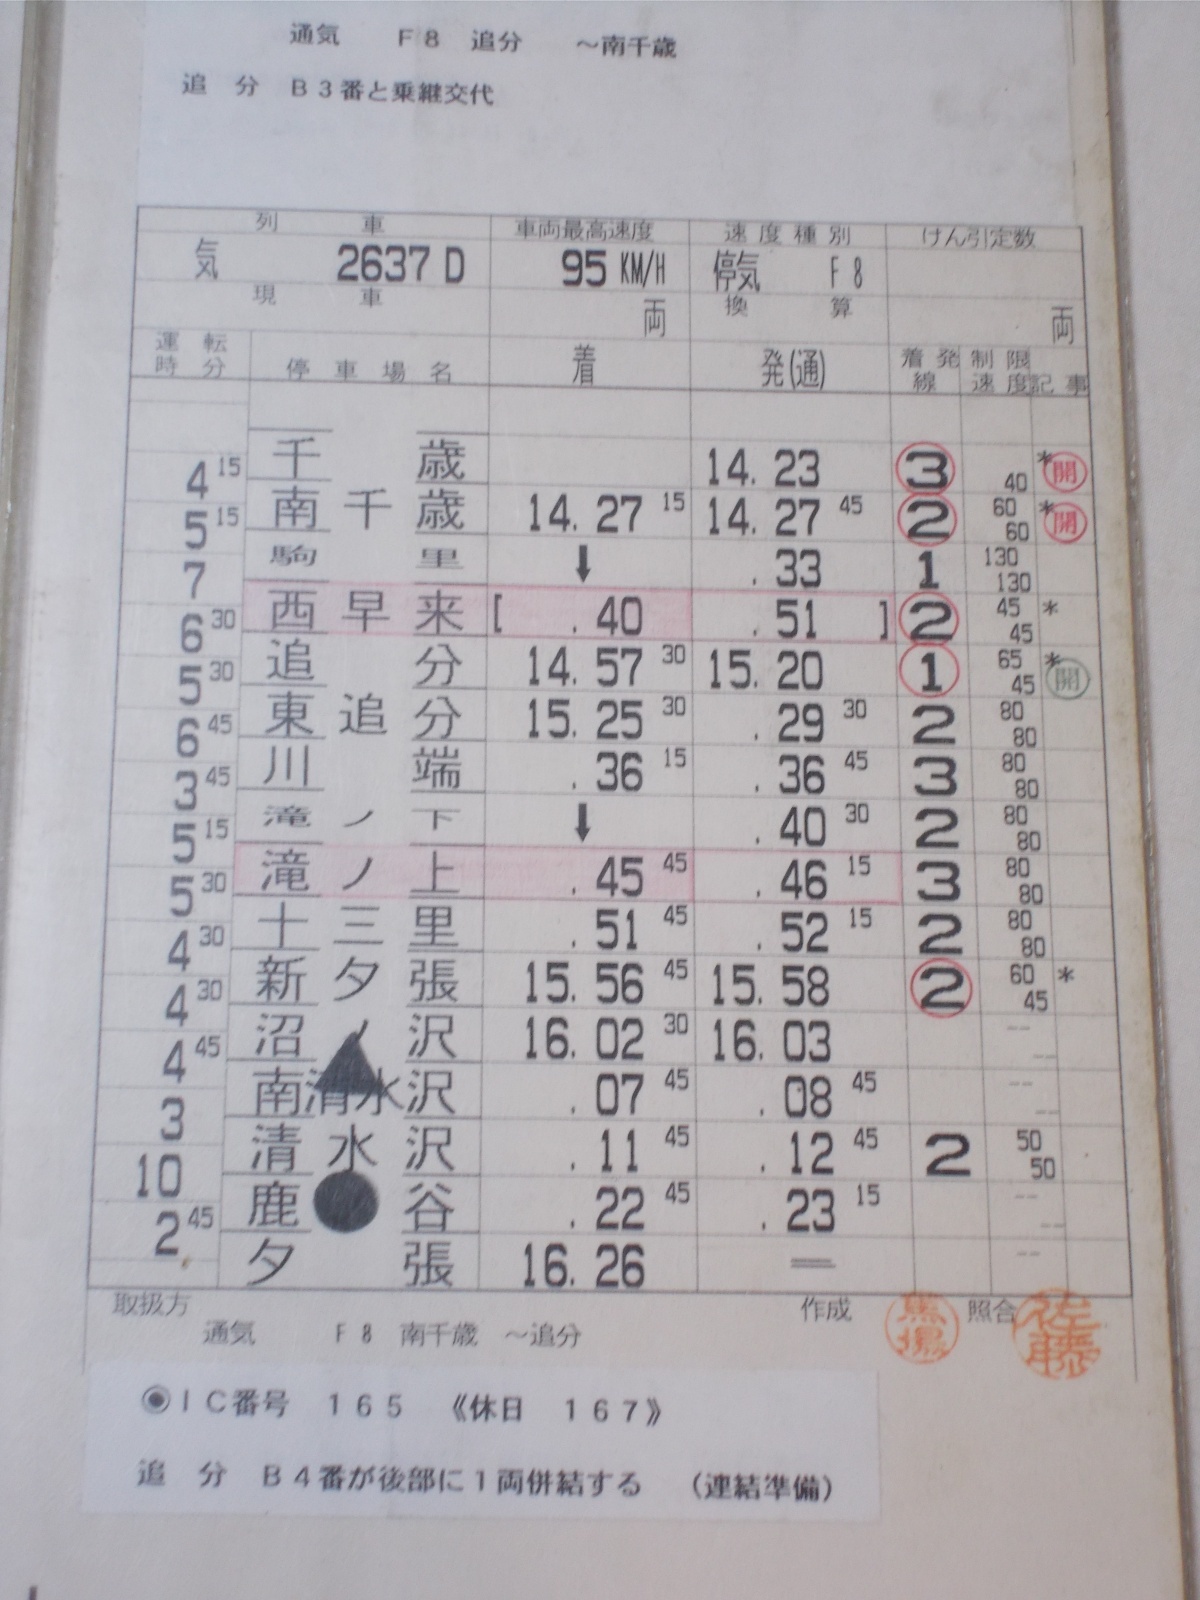 通気 F8 追分 ～南千歳
追分 B3番と乗継交代
列車 車両最高速度 速度種別 けん引定数
気 2637D 95 KM/H 停気 F8
現車 両 換算 両
運転時分 停車場名 着 発(通) 着発線 制限速度 記事
千歳 14.23 3 40 * 開
4 15
南千歳 14.27 15 14.27 45 2 60 60 * 開
5 15
駒里 ↓ .33 1 130 130
7
西早来 [ .40 .51 ] 2 45 45 *
6 30
追分 14.57 30 15.20 1 65 45 * 開
5 30
東追分 15.25 30 .29 30 2 80 80
6 45
川端 .36 15 .36 45 3 80 80
3 45
滝ノ下 ↓ .40 30 2 80 80
5 15
滝ノ上 .45 45 .46 15 3 80 80
5 30
十三里 .51 45 .52 15 2 80 80
4 30
新夕張 15.56 45 15.58 2 60 45 *
4 30
沼ノ沢 16.02 30 16.03 -- --
4 45
南清水沢 .07 45 .08 45 -- --
3
清水沢 .11 45 .12 45 2 50 50
10
鹿ノ谷 .22 45 .23 15 -- --
2 45
夕張 16.26 = --
取扱方 作成 馬場 照合 佐藤
通気 F8 南千歳 ～追分
◉IC番号 165 《休日 167》
追分 B4番が後部に1両併結する (連結準備)